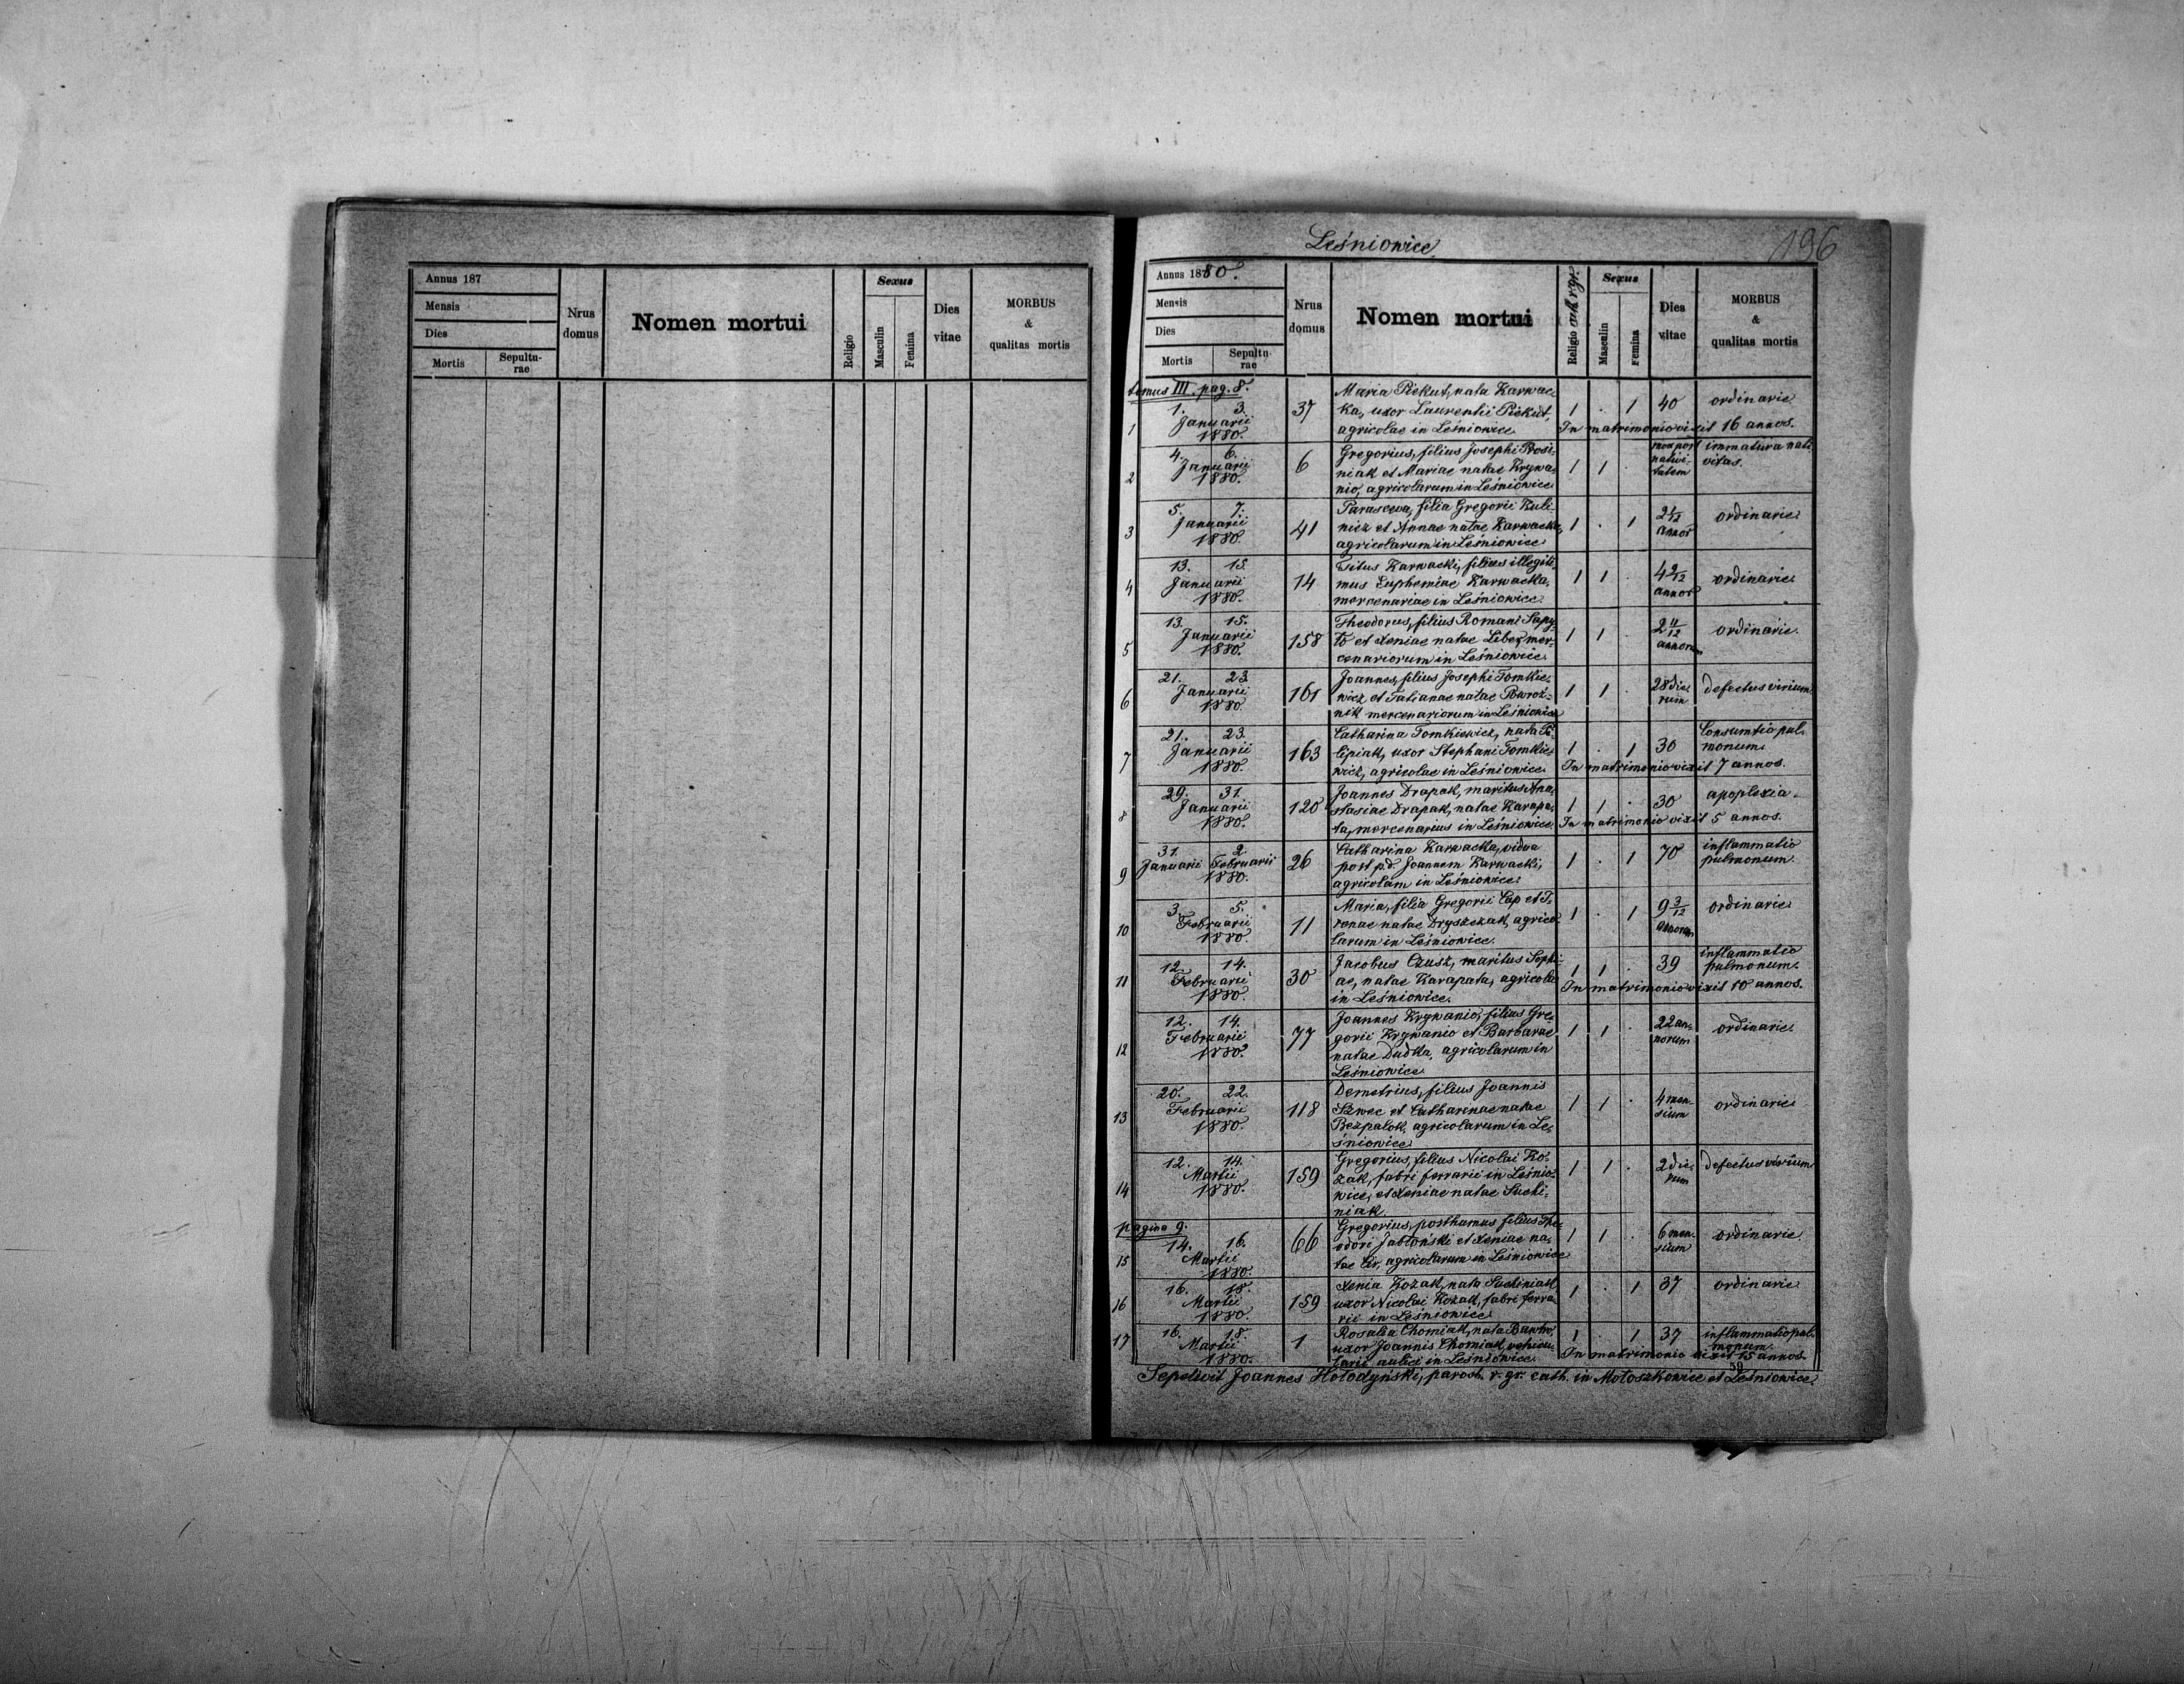 Annus 187
Mensis
Dies
Mortis
Sepultu-
rae
Nrus
domus
Nomen mortui
Religio
Sexus
Masculin
Femina
Dies
vitae
MORBUS
&
qualitas mortis
Leśniowice
196
Annus 1880.
Mensis
Dies
Mortis
Sepultu-
rae
Nrus
domus
Nomen mortui
Religio cath. r. gr.
Sexus
Masculin
Femina
Dies
vitae
MORBUS
&
qualitas mortis
tomus III. pag. 8.
1 1. 3. Januarii 1880. 37
Maria Piekut, nata Karwac-
ka, uxor Laurentii Piekut,
agricolae in Leśniowice
1 . 1 40 ordinarie
In matrimonio vixit 16 annos.
2 4. 6. Januarii 1880. 6
Gregorius, filius Josephi Prosi-
niak et Mariae natae Krywa-
nio, agricolarum in Leśniowice
1 1 mox post nativi-tatem immatura nati-
vitas.
3 5. 7. Januarii 1880. 41
Parascewa, filia Gregorii Kuli-
nicz et Annae natae Karwacka,
agricolarum in Leśniowice
1 . 1 2 1/12 annor ordinarie
4 13. 15. Januarii 1880. 14
Titus Karwacki, filius illegiti-
mus Euphemiae Karwacka,
mercenariae in Leśniowice
1 1 . 4 2/12 annor ordinarie
5 13. 15. Januarii 1880. 158
Theodorus, filius Romani Sapy-
to et Xeniae natae Leber, mer-
cenariorum in Leśniowice
1 1 . 2 11/12 annorum ordinarie.
6 21. 23. Januarii 1880. 161
Joannes, filius Josephi Tomkie-
wicz et Tatianae natae Baroż-
nik mercenariorum in Leśniowice
1 1 . 28 die-
rum defectus virium
7 21. 23. Januarii 1880. 163
Catharina Tomkiewicz, nata Fi-
lipiak, uxor Stephani Tomkie-
wicz, agricolae in Leśniowice
1 . 1 30 Consumtio pul-
monum
In matrimonio vixit 7 annos.
8 29. 31. Januarii 1880. 120
Joannes Drapak, maritus Ana-
stasiae Drapak, natae Karapa-
ta, mercenarius in Leśniowice
1 1 . 30 apoplexia.
In matrimonio vixit 5 annos.
9 31. Januarii 2. Februarii 1880. 26
Catharina Karwacka, vidua
post p.d. Joannem Karwacki,
agricolam in Leśniowice
1 . 1 70 inflammatio
pulmonum.
10 3. 5. Februarii 1880. 11
Maria, filia Gregorii Cap et I-
renae natae Dryszczak, agrico-
larum in Leśniowice.
1 . 1 9 3/12 annorum ordinarie
11 12. 14. Februarii 1880. 30
Jacobus Czusz, maritus Sophi-
ae, natae Karapata, agricola
in Leśniowice.
1 1 . 39 inflammatio
pulmonum.
In matrimonio vixit 10 annos.
12 12. 14. Februarii 1880. 77
Joannes Krywanio, filius Gre-
gorii Krywanio et Barbarae
natae Dudka, agricolarum in
Leśniowice
1 1 . 22 an-
norum ordinarie
13 20. 22. Februarii 1880. 118
Demetrius, filius Joannis
Szwec et Catharinae natae
Bezpalok, agricolarum in Le-
śniowice
1 1 . 4 men-
sium ordinarie
14 12. 14. Martii 1880. 159
Gregorius, filius Nicolai Ko-
zak, fabri ferrarii in Leśnio-
wice, et Xeniae natae Suchi-
niak.
1 1 . 2 die-
rum defectus virium
pagina 9.
15 14. 16. Martii 1880. 66
Gregorius, posthumus filius The-
odori Jabłoński et Xeniae na-
tae Cir, agricolarum in Leśniowice
1 1 . 6 men-
sium ordinarie
16 16. 18. Martii 1880. 159
Xenia Kozak, nata Suchiniak,
uxor Nicolai Kozak, fabri ferra-
rii in Leśniowice
1 . 1 37 ordinarie
17 16. 18. Martii 1880. 1
Rosalia Chomiak, nata
uxor Joannis Chomiak,
aulici in Leśniowice
1 . 1 37 inflammatio pul-
monum.
In matrimonio vixit 15 annos.
59
Sepelivit Joannes Hołodyński, paroch. r. gr. cath. in Mołoszkowice et Leśniowice.